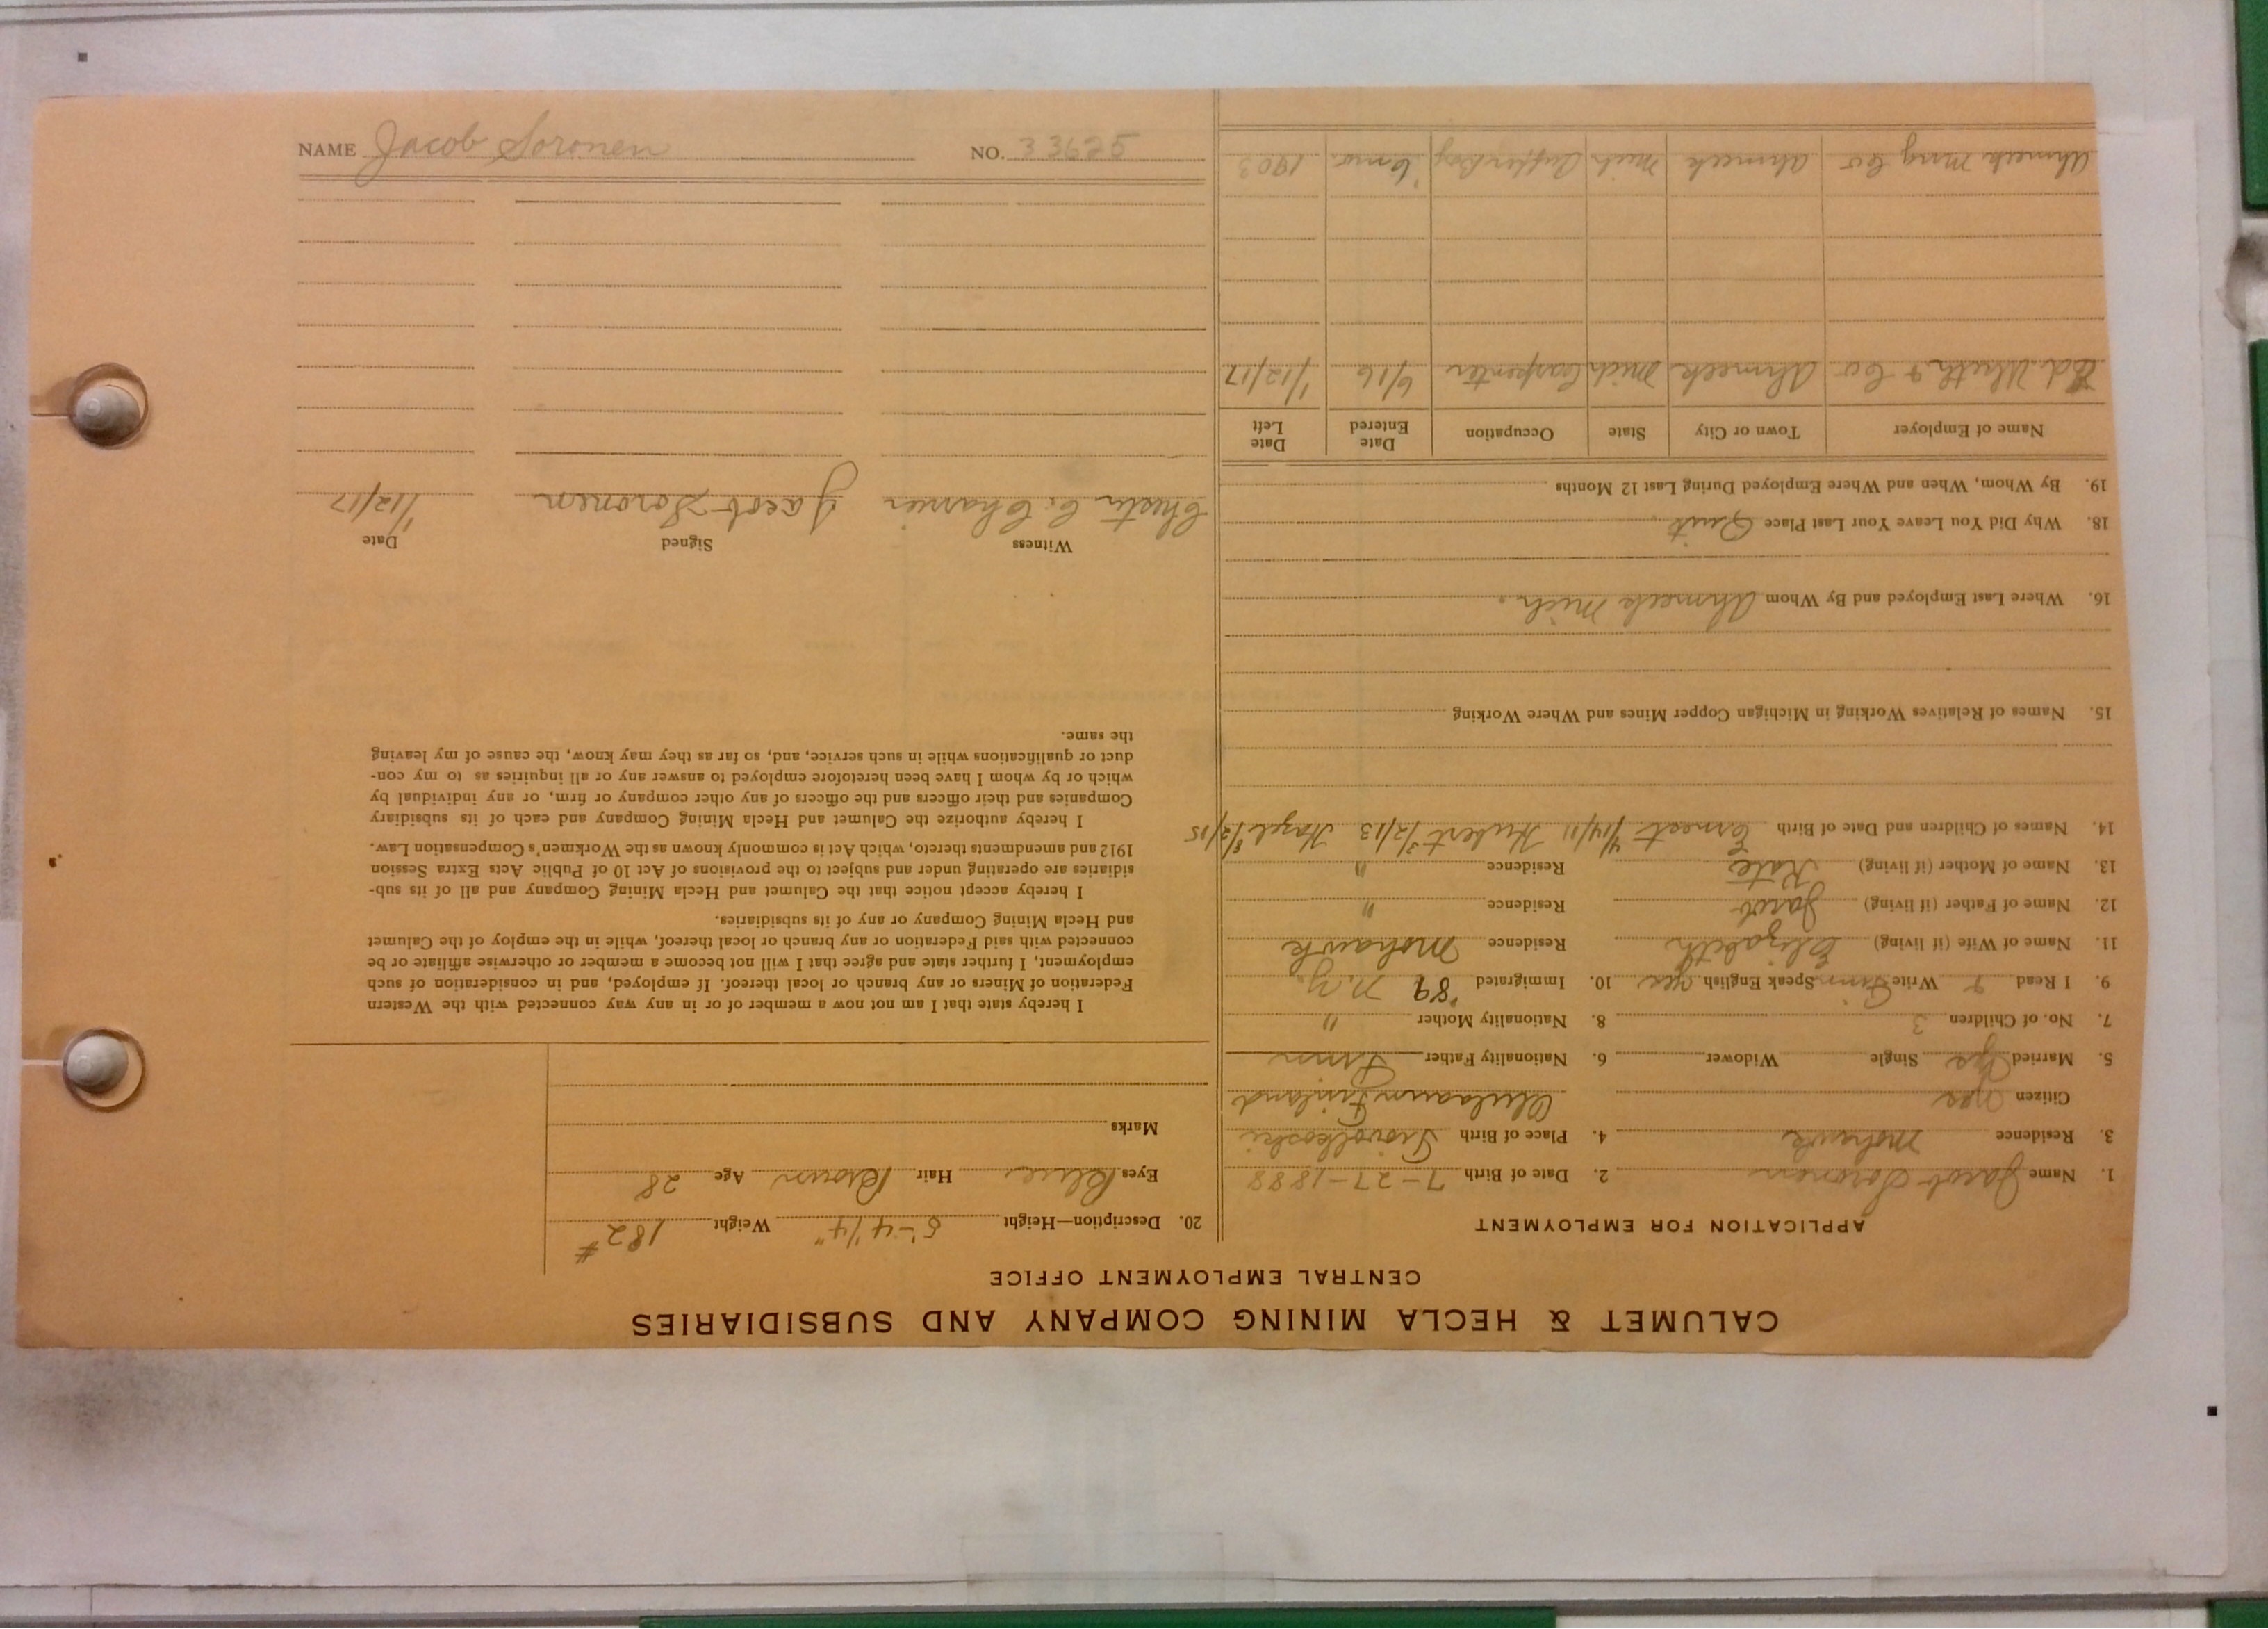 CALUMET & HECLA MINING COMPANY AND SUBSIDIARIES
CENTRAL EMPLOYMENT OFFICE
APPLICATION FOR EMPLOYMENT
1. Name Jacob Soronen 2. Date of Birth 7-27-1888
3. Residence Mohawk 4. Place of Birth
Citizen yes Finland
5. Married yes Single Widower 6. Nationality Father Finn
7. No. of Children 3 8. Nationality Mother "
9. I Read & Write Finn Speak English yes 10. Immigrated '89 N.Y.
11. Name of Wife (if living) Elizabeth Residence Mohawk
12. Name of Father (if living) Jacob Residence "
13. Name of Mother (if living) Kate Residence "
14. Names of Children and Date of Birth Ernest 4/14/11 Hubert 3/2/13 Hazel 8/2/15
15. Names of Relatives Working in Michigan Copper Mines and Where Working
16. Where Last Employed and By Whom Ahmeek Mich.
18. Why Did You Leave Your Last Place Quit
19. By Whom, When and Where Employed During Last 12 Months
Name of Employer Town or City State Occupation Date Entered Date Left
Ed. & Co Ahmeek Mich Carpenter 6/16 1/12/17
Ahmeek Mng Co Ahmeek Mich Boy 6 mo. 1903
20. Description—Height 5'-4 1/4" Weight 182 #
Eyes Blue Hair Brown Age 28
Marks
I hereby state that I am not now a member of or in any way connected with the Western
Federation of Miners or any branch or local thereof. If employed, and in consideration of such
employment, I further state and agree that I will not become a member or otherwise affiliate or be
connected with said Federation or any branch or local thereof, while in the employ of the Calumet
and Hecla Mining Company or any of its subsidiaries.
I hereby accept notice that the Calumet and Hecla Mining Company and all of its sub-
sidiaries are operating under and subject to the provisions of Act 10 of Public Acts Extra Session
1912 and amendments thereto, which Act is commonly known as the Workmen's Compensation Law.
I hereby authorize the Calumet and Hecla Mining Company and each of its subsidiary
Companies and their officers and the officers of any other company or firm, or any individual by
which or by whom I have been heretofore employed to answer any or all inquiries as to my con-
duct or qualifications while in such service, and, so far as they may know, the cause of my leaving
the same.
Witness Signed Date
Chester C. Jacob Soronen 1/12/17
NAME Jacob Soronen NO. 33625